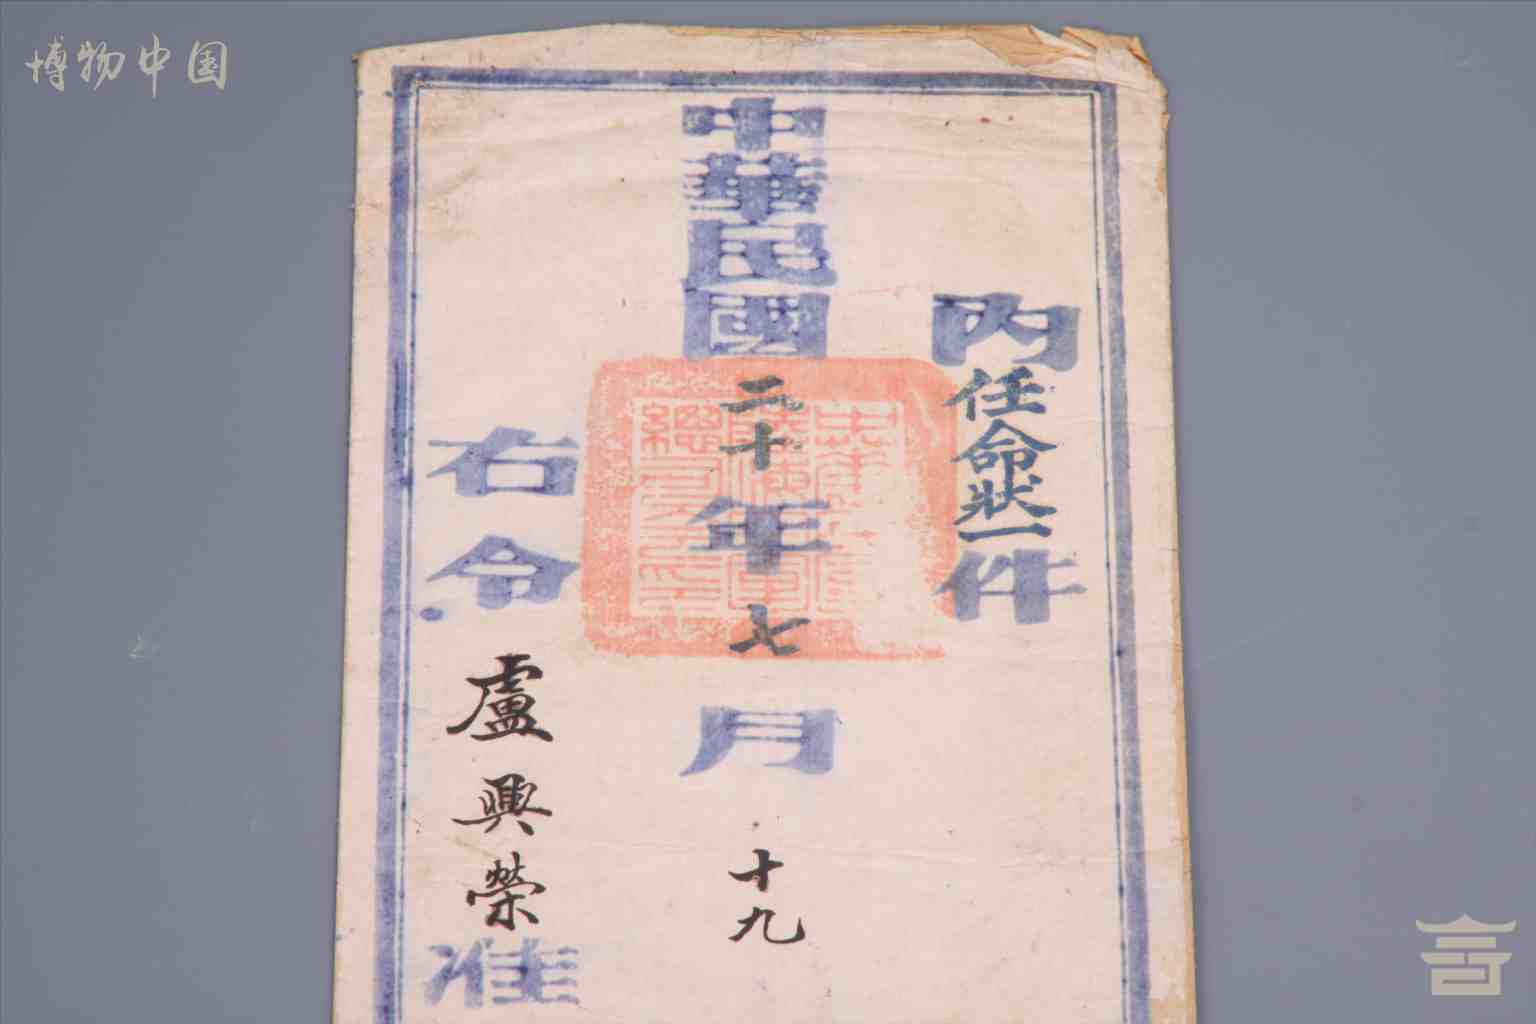 博物中国
內任命狀一件
中華民國二十年七月十九
右令盧興榮准